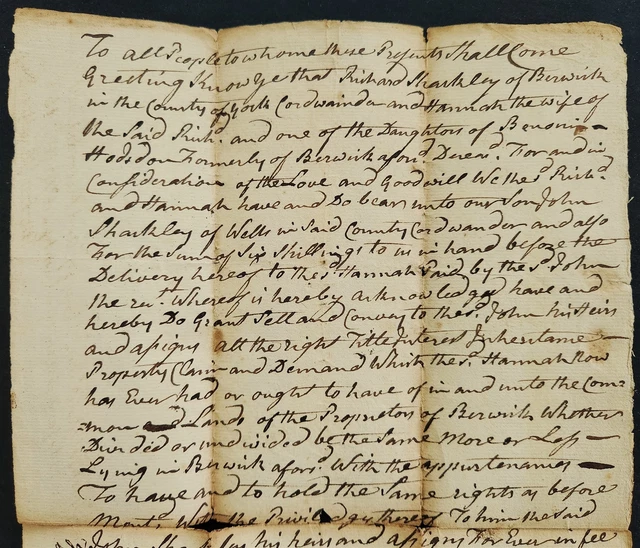 To all People to whome these Presents Shall Come
Greeting Know Ye that Richard Sharkley of Berwick
in the County of York Cordwainder and Hannah the wife of
the Said Richd. and one of the Daughters of Benoni
Hodsdon Formerly of Berwick aforsd. Decesd. For and in
Consideration of the Love and Good will We the sd. Richd.
and Hannah have and Do bear unto our Son John
Sharkley of Wells in Said County Cordwander and also
For the Sum of Six Shillings to us in hand before the
Delivery hereof to the sd. Hannah Paid by the sd. John
the rect. Whereof is hereby acknowledged have and
hereby Do Grant Sell and Convey to the sd. John his Heirs
and assigns all the right Title Interest Inheritance
Property Claim and Demand Which the sd. Hannah Now
has Ever had or ought to have of in and unto the Com=
=mon and Lands of the Proprietors of Berwick Whether
Divided or undivided be the Same More or Less
Lying in Berwick aforsd. With the appurtenances
To have and to hold the Same rights as before
Mentd. With the Priviledges thereof To him the Said
John his heirs and assigns For Ever in fee